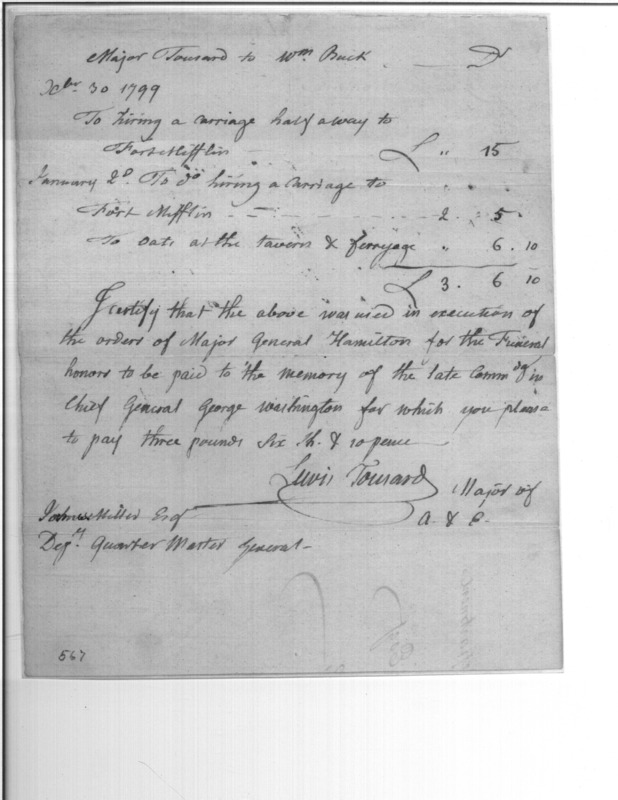 Major Tousard to Wm Buck Dr
Xbr 30 1799
To hiring a carriage half a way to
Fort Mifflin £ " 15
January 2d. To do hiring a carriage to
Fort Mifflin 2. 5
To oats at the tavern & ferryage " 6. 10
£ 3. 6 10
I certify that the above was used in execution of
the orders of Major General Hamilton for the Funeral
honors to be paid to the memory of the late Commdg in
Chief General George Washington for which you please
to pay three pounds six sh. & 10 pence
Lewis Tousard Major of
A. & E.
Miller Esq
Depy. Quarter Master General
567